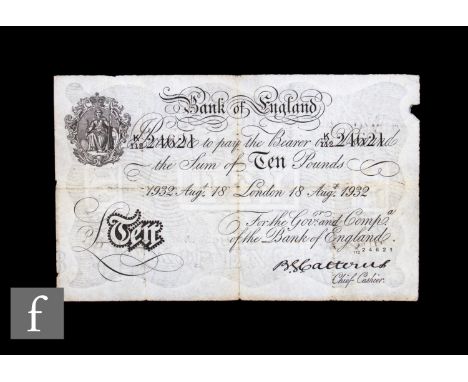 Bank of England
K/112 24621 K/112 24621
Promise to pay the Bearer on Demand
the Sum of Ten Pounds
1932 Augt. 18th London 18 Augt. 1932
For the Govr. and Compa.
of the Bank of England.
Ten
K/112 24621
B G Catterns
Chief Cashier.
f